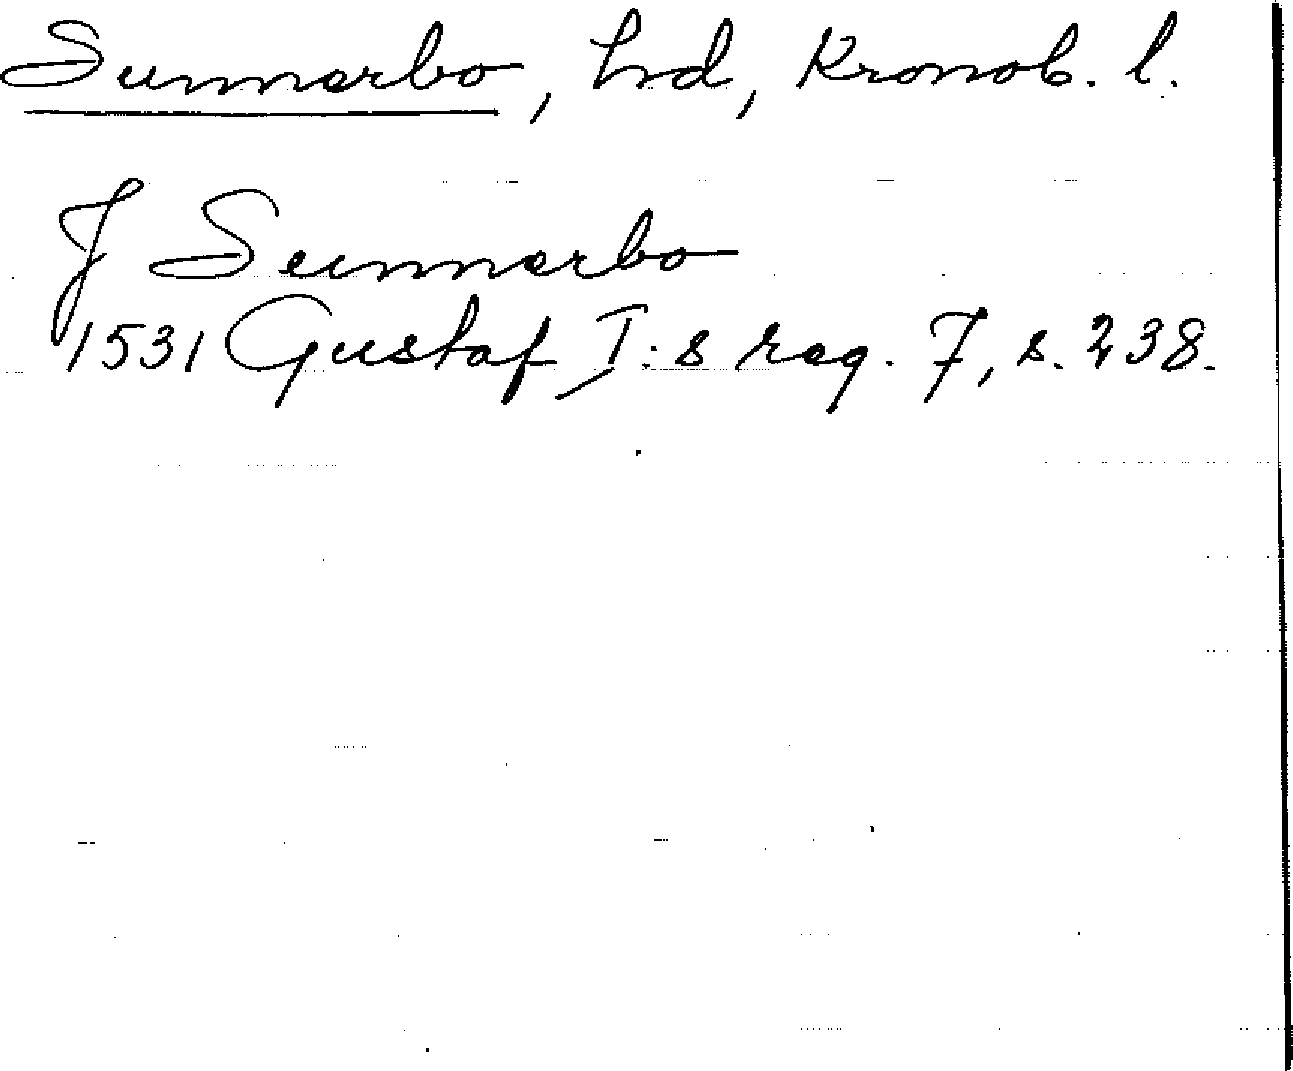 Sunnerbo, hd, Kronob. l.
J Sunnerbo
1531 Gustaf I:s reg. 7, s. 238.